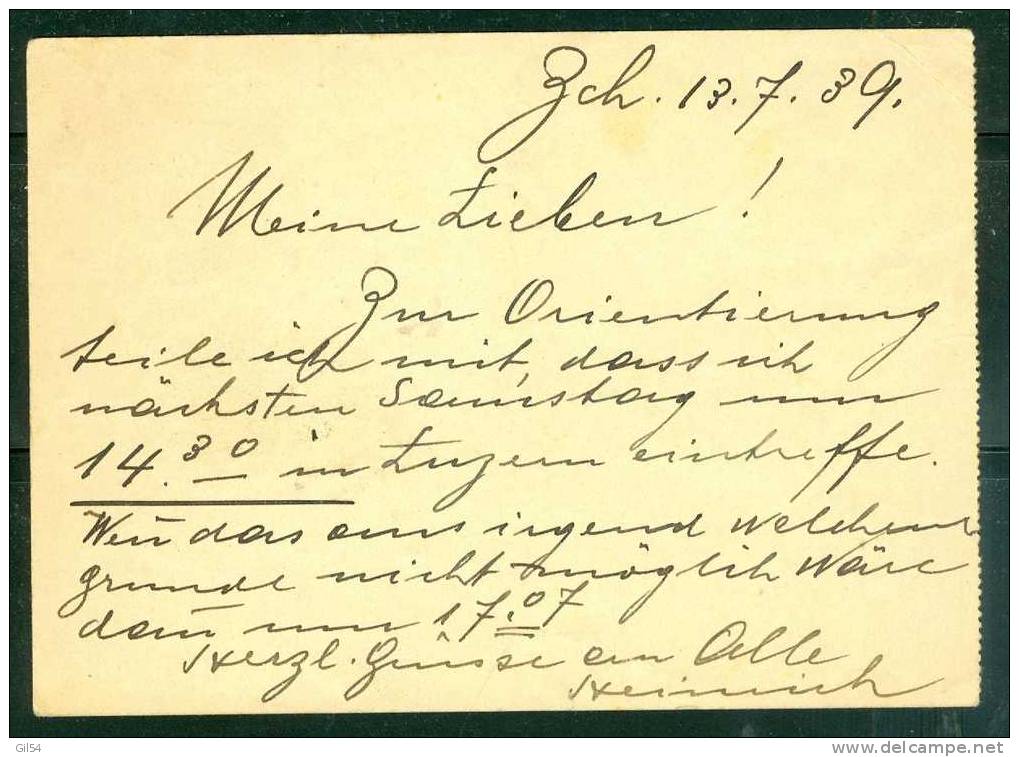 Zch. 13.7.39.
Meine Lieben!
Zur Orientierung
teile ich mit, dass ich
nächsten Samstag um
14.30 in Luzern eintreffe.
Wen̄ das aus irgend welchem
grunde nicht möglich wäre
dan̄ um 17.07
Herzl. Grüsse an Alle
Heinrich
Gil54
www.delcampe.net